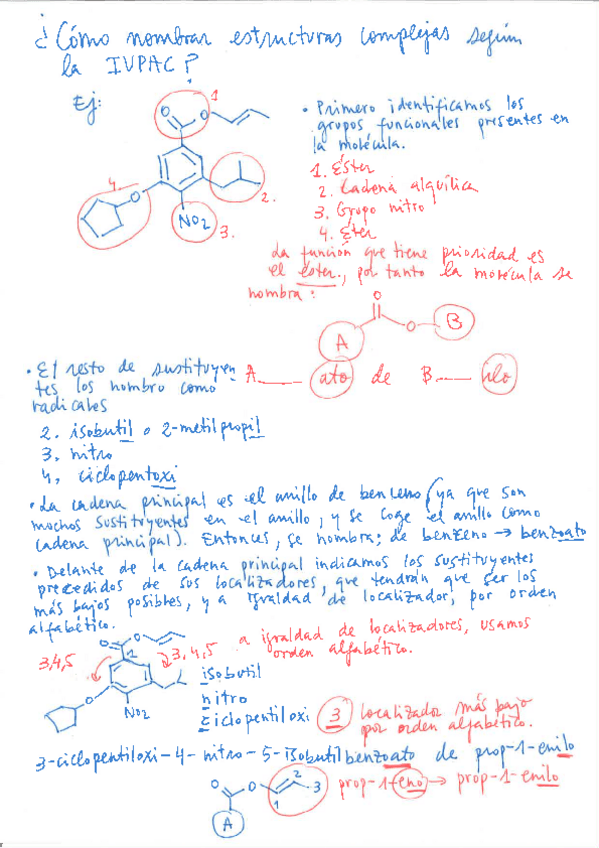 ¿Cómo nombrar estructuras complejas según
la IUPAC?
Ej:
1
O
O
4.
O
NO2
2.
3.
• Primero identificamos los
grupos funcionales presentes en
la molécula.
1. Éster
2. Cadena alquílica
3. Grupo nitro
4. Éter
La función que tiene prioridad es
el éster., por tanto la molécula se
nombra:
O
A
O
B
A____ ato de B____ ilo
• El resto de sustituyen
tes los nombro como
radicales
2. isobutil o 2-metilpropil
3. nitro
4. ciclopentoxi
• La cadena principal es el anillo de benceno (ya que son
muchos sustituyentes en el anillo, y se coge el anillo como
cadena principal). Entonces, se nombra: de benceno → benzoato
• Delante de la cadena principal indicamos los sustituyentes
precedidos de sus localizadores, que tendrán que ser los
más bajos posibles, y a igualdad de localizador, por orden
alfabético.
O
O
1
3,4,5
3,4,5
O
NO2
a igualdad de localizadores, usamos
orden alfabético.
isobutil
nitro
ciclopentiloxi
3 localizador más bajo
por orden alfabético.
3-ciclopentiloxi-4-nitro-5-isobutilbenzoato de prop-1-enilo
O
O
A
1
2
3
prop-1-eno → prop-1-enilo